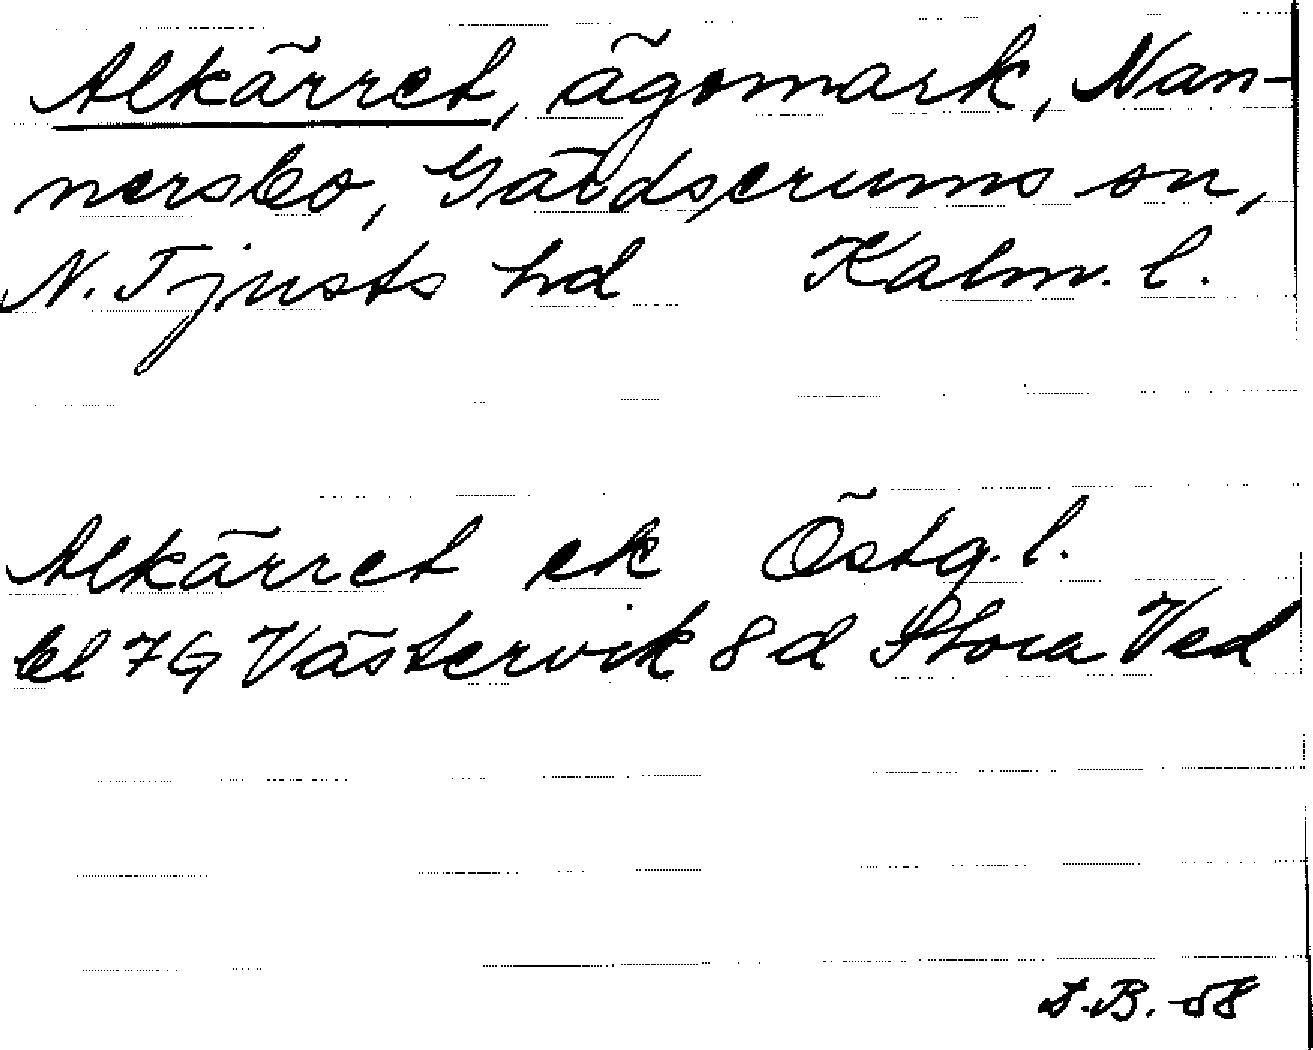 Alkärret, ägomark, Nan-
nersbo, Gärdserums sn,
N. Tjusts hd Kalm. l.
Alkärret ek Östg. l.
bl 7G Västervik 8d Stora Ved
S.B. -58